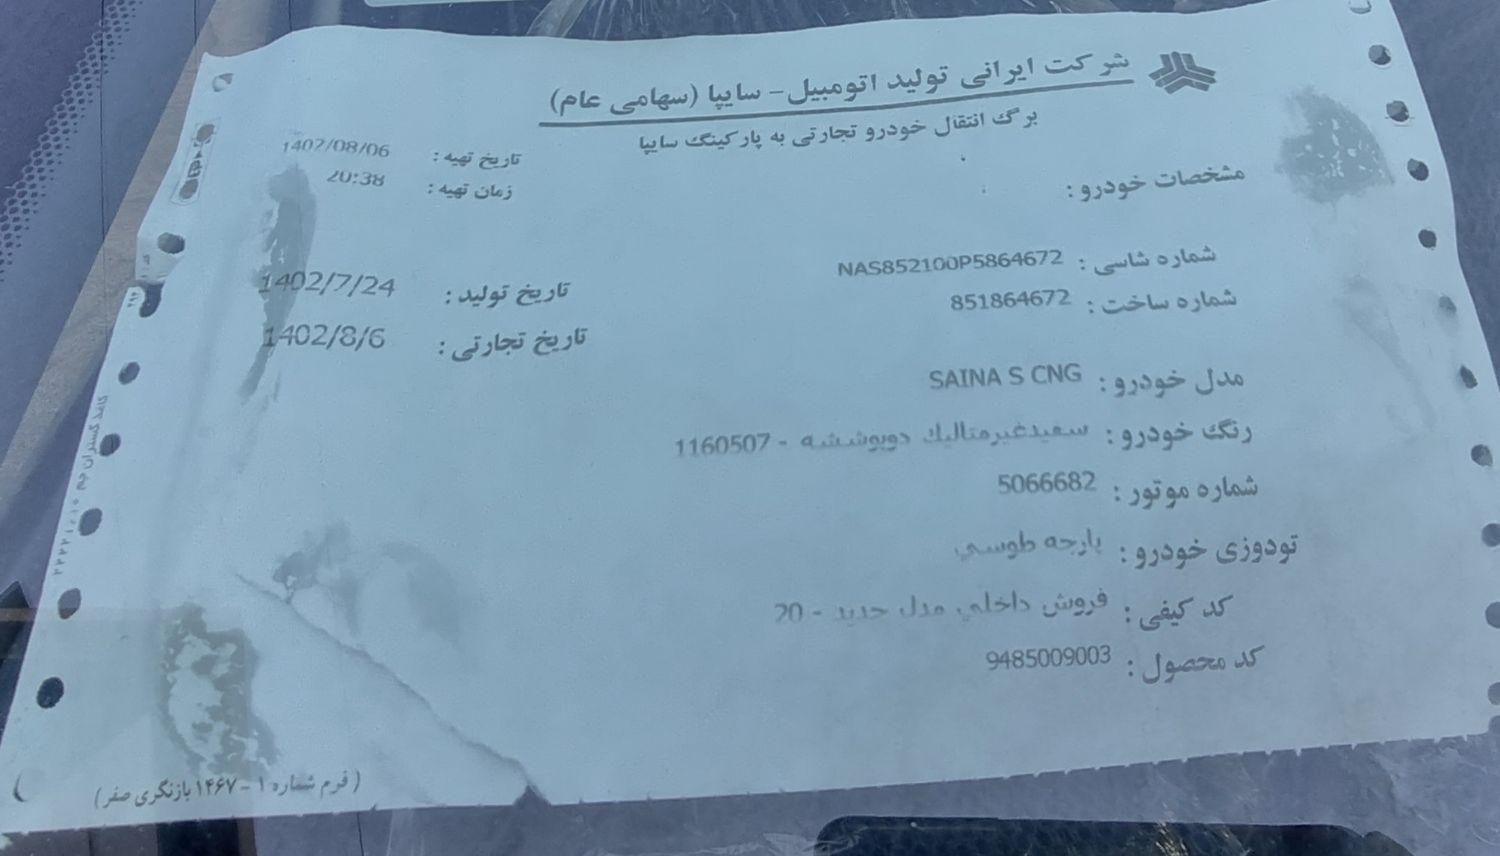 شرکت ایرانی تولید اتومبیل- سایپا (سهامی عام)
برگ انتقال خودرو تجارتی به پارکینگ سایپا
تاریخ تهیه : 1402/08/06
زمان تهیه : 20:38
مشخصات خودرو :
شماره شاسی : NAS852100P5864672
تاریخ تولید : 1402/7/24
شماره ساخت : 851864672
تاریخ تجارتی : 1402/8/6
مدل خودرو : SAINA S CNG
رنگ خودرو : سفیدغیرمتالیك دوپوششه - 1160507
شماره موتور : 5066682
تودوزی خودرو : پارچه طوسي
کد کیفی : فروش داخلي مدل جدید - 20
کد محصول : 9485009003
( فرم شماره ۱ - ۱۴۶۷ بازنگری صفر)
کاغذ گستران جم